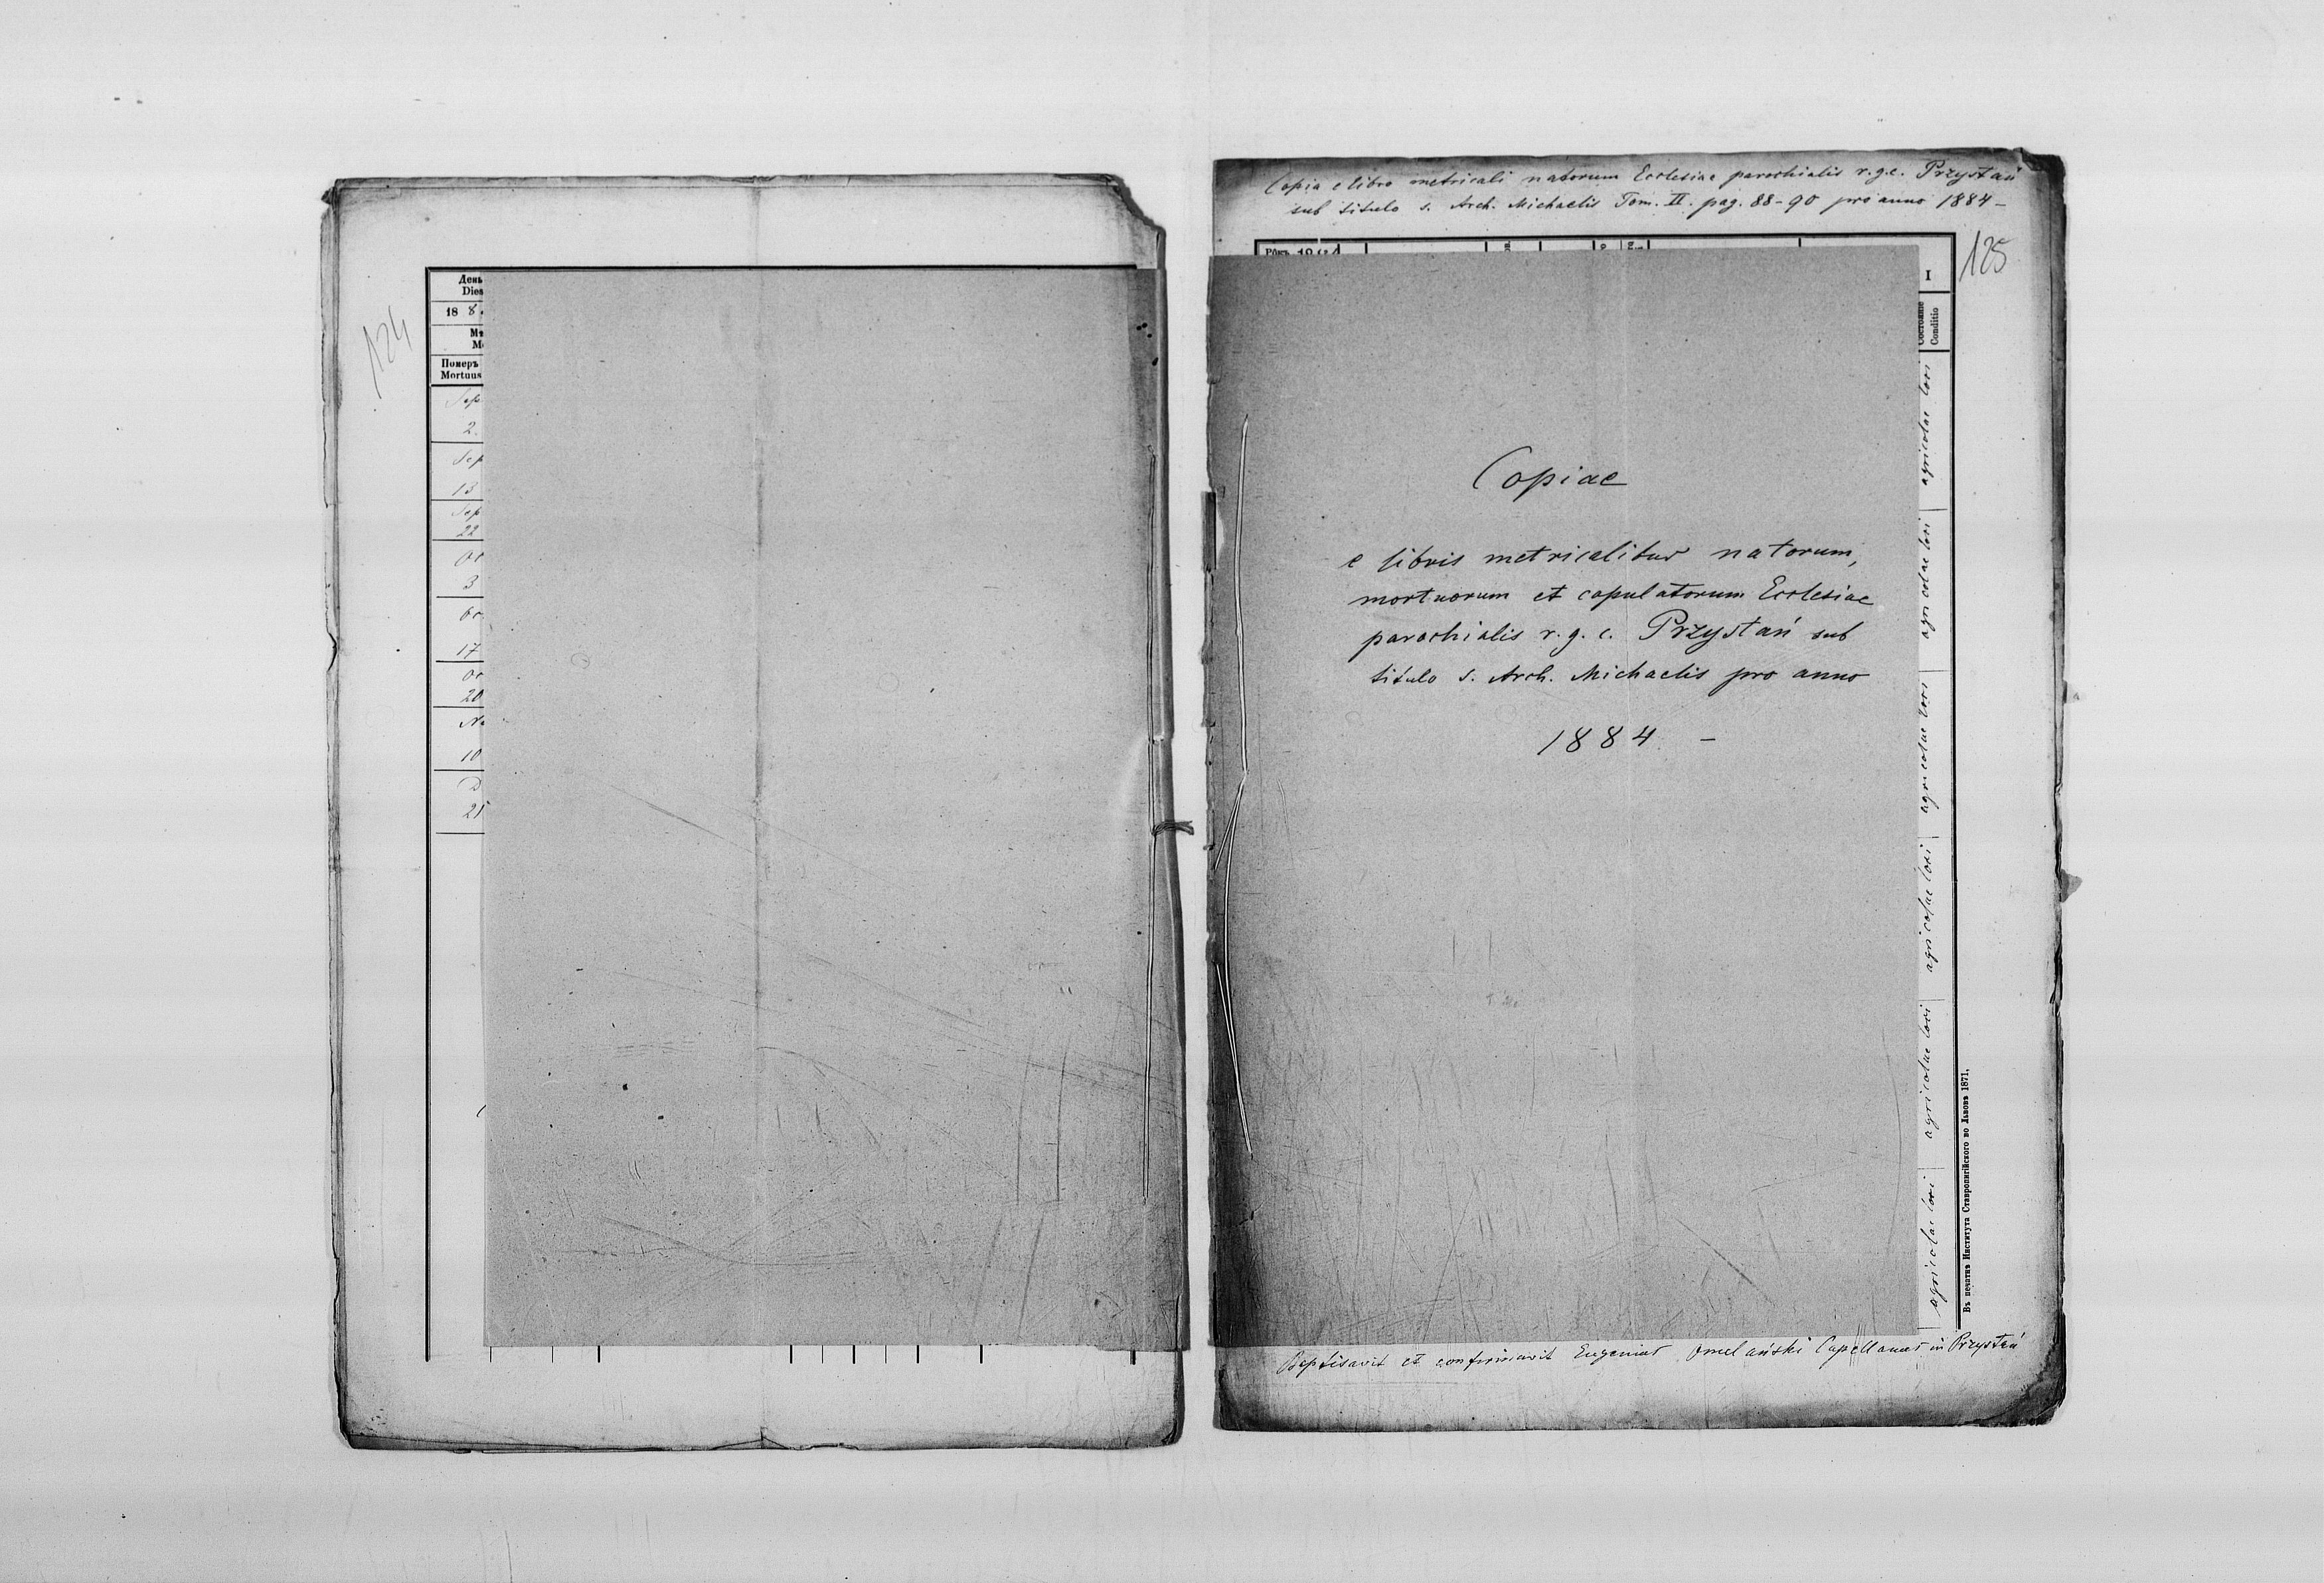 124
День
Dies
18 8
Померъ
Mortuus
Sep
2.
Sep
13
Sep
22
Oc
3
Oc
17
Oc
20
No
10
D
21
Copia e libro metricali natorum Ecclesiae parochialis r.g.c. Przystań
sub titulo s. Arch. Michaelis Tom. II. pag. 88-90 pro anno 1884 -
125
Рôкъ 1884
I
Состоянiе
Conditio
Copiae
e libris metricalibus natorum,
mortuorum et copulatorum Ecclesiae
parochialis r. g. c. Przystań sub
titulo s. Arch. Michaelis pro anno
1884 -
agricolae loci
agricolae loci
agricolae loci
agricolae loci
agricolae loci
agricolae loci
Въ печатнѣ Института Ставропигiйского во Львовѣ 1871.
Baptisavit et confirmavit Eugenius Omelański Capellanus in Przystań